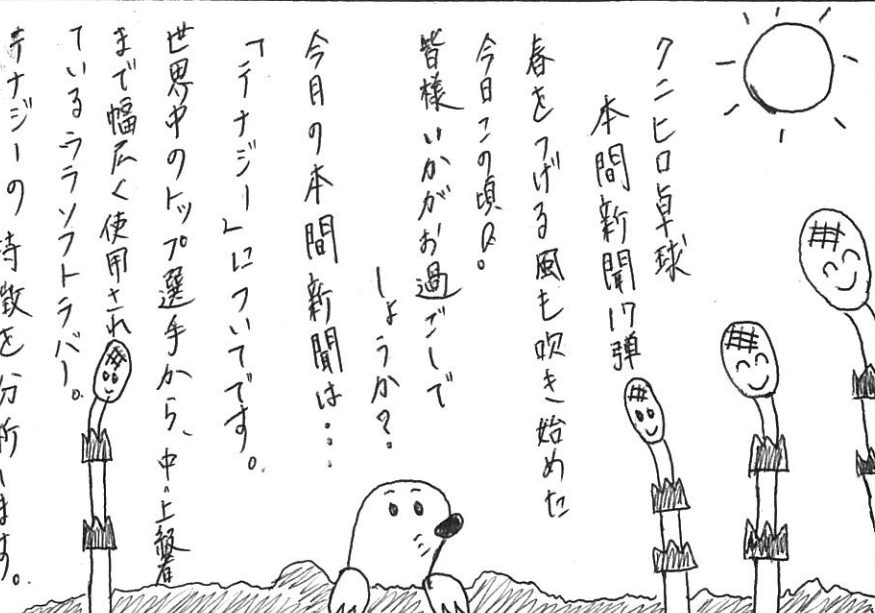 クニヒロ卓球
本間新聞17弾
春をつげる風も吹き始めた
今日この頃。
皆様いかがお過ごしで
しょうか?
今月の本間新聞は…
「テナジー」についてです。
世界中のトップ選手から、中・上級者
まで幅広く使用され
ているウラソフトラバー。
テナジーの特徴を分析します。